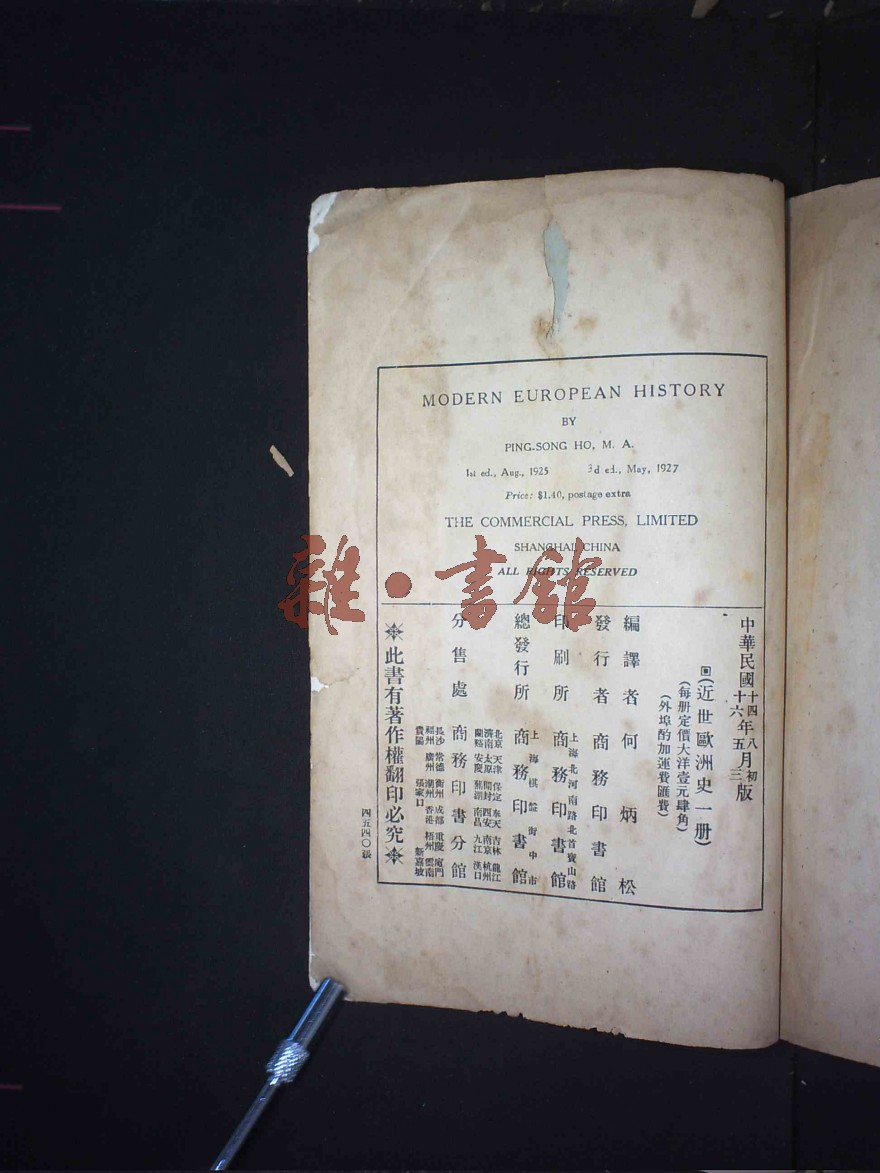 MODERN EUROPEAN HISTORY
BY
PING-SONG HO, M. A.
1st ed., Aug., 1925 3d ed., May, 1927
Price: $1.40, postage extra
THE COMMERCIAL PRESS, LIMITED
SHANGHAI, CHINA
ALL RIGHTS RESERVED
雜·書館
中華民國十四年八月初版
十六年五月三版
(近世歐洲史一册)
(每册定價大洋壹元肆角)
(外埠酌加運費匯費)
編譯者 何炳松
發行者 商務印書館
印刷所 上海北河南路北首寶山路 商務印書館
總發行所 上海棋盤街中市 商務印書館
分售處 商務印書分館
北京 天津 保定 奉天 吉林 龍江
濟南 太原 開封 西安 南京 杭州
蘭谿 安慶 蕪湖 南昌 九江 漢口
長沙 常德 衡州 成都 重慶 廈門
福州 廣州 潮州 香港 梧州 雲南
貴陽 張家口 新嘉坡
此書有著作權翻印必究
四五四〇張